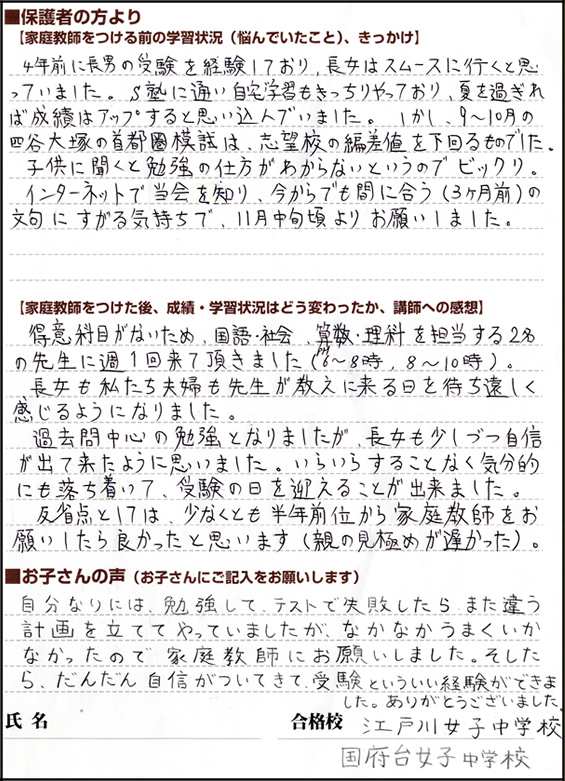 ■保護者の方より
【家庭教師をつける前の学習状況（悩んでいたこと）、きっかけ】
4年前に長男の受験を経験しており、長女はスムースに行くと思
っていました。S塾に通い自宅学習もきっちりやっており、夏を過ぎれ
ば成績はアップすると思い込んでいました。しかし、9〜10月の
四谷大塚の首都圏模試は、志望校の偏差値を下回るものでした。
子供に聞くと勉強の仕方がわからないというのでビックリ。
インターネットで当会を知り、今からでも間に合う（3ヶ月前）の
文句にすがる気持ちで、11月中旬頃よりお願いしました。
【家庭教師をつけた後、成績・学習状況はどう変わったか、講師への感想】
得意科目がないため、国語・社会、算数・理科を担当する2名
の先生に週1回来て頂きました（PM6〜8時，8〜10時）。
長女も私たち夫婦も先生が教えに来る日を待ち遠しく
感じるようになりました。
過去問中心の勉強となりましたが、長女も少しづつ自信
が出て来たように思いました。いらいらすることなく気分的
にも落ち着いて、受験の日を迎えることが出来ました。
反省点としては、少なくとも半年前位から家庭教師をお
願いしたら良かったと思います（親の見極めが遅かった）。
■お子さんの声（お子さんにご記入をお願いします）
自分なりには、勉強して、テストで失敗したら、また違う
計画を立ててやっていましたが、なかなかうまくいか
なかったので家庭教師にお願いしました。そした
ら、だんだん自信がついてきて、受験といういい経験ができま
した。ありがとうございました。
氏名 合格校 江戸川女子中学校
国府台女子中学校